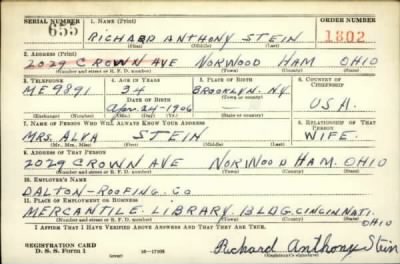 SERIAL NUMBER 1. NAME (Print) ORDER NUMBER
655 RICHARD ANTHONY STEIN 1302
(First) (Middle) (Last)
2. ADDRESS (Print)
2029 CROWN AVE NORWOOD HAM OHIO
(Number and street or R. F. D. number) (Town) (County) (State)
3. TELEPHONE 4. AGE IN YEARS 5. PLACE OF BIRTH 6. COUNTRY OF CITIZENSHIP
ME 9891 34 BROOKLYN. N.Y.
DATE OF BIRTH (Town or county)
Apr. 24-1906 USA.
(Exchange) (Number) (Mo.) (Day) (Yr.) (State or country)
7. NAME OF PERSON WHO WILL ALWAYS KNOW YOUR ADDRESS 8. RELATIONSHIP OF THAT PERSON
MRS. ALVA STEIN WIFE.
(Mr., Mrs., Miss) (First) (Middle) (Last)
9. ADDRESS OF THAT PERSON
2029 CROWN AVE NORWOOD HAM. OHIO
(Number and street or R. F. D. number) (Town) (County) (State)
10. EMPLOYER'S NAME
DALTON-ROOFING. CO
11. PLACE OF EMPLOYMENT OR BUSINESS
MERCANTILE. LIBRARY. BLDG. CINCINNATI. OHIO
(Number and street or R. F. D. number) (Town) (County) (State)
I AFFIRM THAT I HAVE VERIFIED ABOVE ANSWERS AND THAT THEY ARE TRUE.
REGISTRATION CARD
D. S. S. Form 1 (over) Richard Anthony Stein
(Registrant's signature)